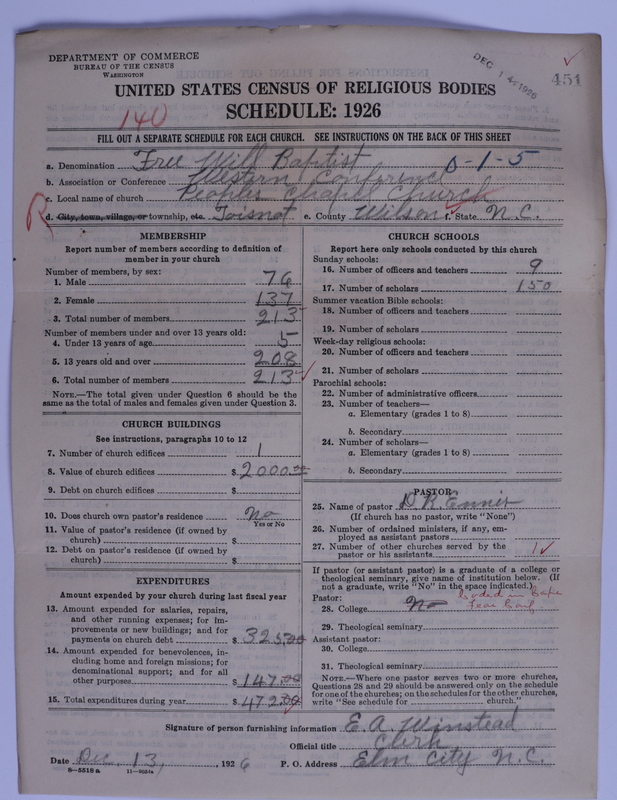 DEPARTMENT OF COMMERCE
BUREAU OF THE CENSUS
WASHINGTON
DEC 14 1926
451
UNITED STATES CENSUS OF RELIGIOUS BODIES
SCHEDULE: 1926
140
FILL OUT A SEPARATE SCHEDULE FOR EACH CHURCH. SEE INSTRUCTIONS ON THE BACK OF THIS SHEET
a. Denomination Free Will Baptist 0-1-5
b. Association or Conference Western Conference
c. Local name of church Peoples Chapel Church
d. City, town, village, or township, etc. Toisnot e. County Wilson f. State N.C.
MEMBERSHIP
Report number of members according to definition of
member in your church
Number of members, by sex:
1. Male 76
2. Female 137
3. Total number of members 213
Number of members under and over 13 years old:
4. Under 13 years of age 5
5. 13 years old and over 208
6. Total number of members 213
NOTE.—The total given under Question 6 should be the
same as the total of males and females given under Question 3.
CHURCH BUILDINGS
See instructions, paragraphs 10 to 12
7. Number of church edifices 1
8. Value of church edifices $2000.00
9. Debt on church edifices $
10. Does church own pastor's residence No
Yes or No
11. Value of pastor's residence (if owned by
church) $
12. Debt on pastor's residence (if owned by
church) $
EXPENDITURES
Amount expended by your church during last fiscal year
13. Amount expended for salaries, repairs,
and other running expenses; for im-
provements or new buildings; and for
payments on church debt $325.00
14. Amount expended for benevolences, in-
cluding home and foreign missions; for
denominational support; and for all
other purposes $147.00
15. Total expenditures during year $472.00
CHURCH SCHOOLS
Report here only schools conducted by this church
Sunday schools:
16. Number of officers and teachers 9
17. Number of scholars 150
Summer vacation Bible schools:
18. Number of officers and teachers
19. Number of scholars
Week-day religious schools:
20. Number of officers and teachers
21. Number of scholars
Parochial schools:
22. Number of administrative officers
23. Number of teachers—
a. Elementary (grades 1 to 8)
b. Secondary
24. Number of scholars—
a. Elementary (grades 1 to 8)
b. Secondary
PASTOR
25. Name of pastor D. K. Ennis
(If church has no pastor, write "None")
26. Number of ordained ministers, if any, em-
ployed as assistant pastors
27. Number of other churches served by the
pastor or his assistants 1
If pastor (or assistant pastor) is a graduate of a college or
theological seminary, give name of institution below. (If
not a graduate, write "No" in the space indicated.)
Pastor:
28. College No in Cape Fear
29. Theological seminary
Assistant pastor:
30. College
31. Theological seminary
NOTE.—Where one pastor serves two or more churches,
Questions 28 and 29 should be answered only on the schedule
for one of the churches; on the schedules for the other churches,
write "See schedule for church."
Signature of person furnishing information E. A. Winstead
Official title Clerk
Date Dec. 13, 1926 P. O. Address Elm City N.C.
8—5518 a